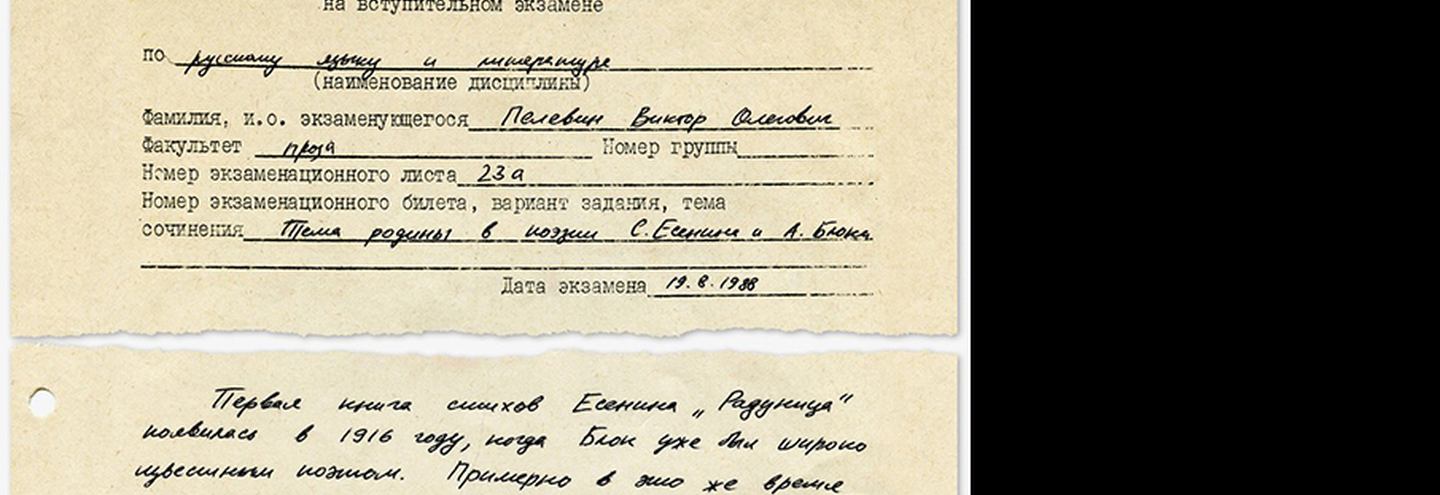 на вступительном экзамене
по русскому языку и литературе
(наименование дисциплины)
Фамилия, и.о. экзаменующегося Пелевин Виктор Олегович
Факультет проза Номер группы
Номер экзаменационного листа 23а
Номер экзаменационного билета, вариант задания, тема
сочинения Тема родины в поэзии С.Есенина и А. Блока
Дата экзамена 19.8.1988
Первая книга стихов Есенина „Радуница"
появилась в 1916 году, когда Блок уже был широко
известным поэтом. Примерно в это же время